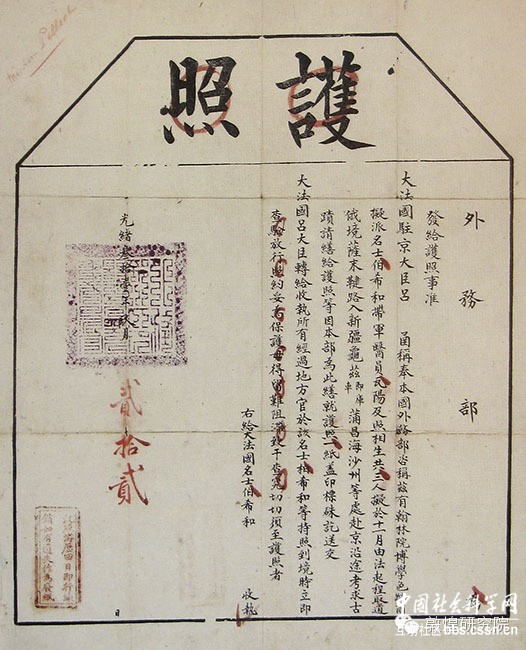 護照
外務部
發給護照事准
大法國駐京大臣呂 函稱奉本國外務部咨稱茲有翰林院博學
擬派名士伯希和帶軍醫員瓦陽及照相生共三人擬於十一月由法起程取道
俄境薩末鞬路入新疆龜茲即庫車蒲昌海沙州等處赴京沿途考求古
蹟請繕給護照等因本部為此繕就護照一紙蓋印標硃訖送交
大法國呂大臣轉給收執所有經過地方官於該名士伯希和等持照到境時立即
查驗放行照約妥為保護毋得留難阻滯致干查究切切須至護照者
右給大法國名士伯希和 收執
光緒叁拾壹年玖月
貳拾貳
日
中国社会科学网
敦煌研究院
互动社区 bbs.cssn.cn